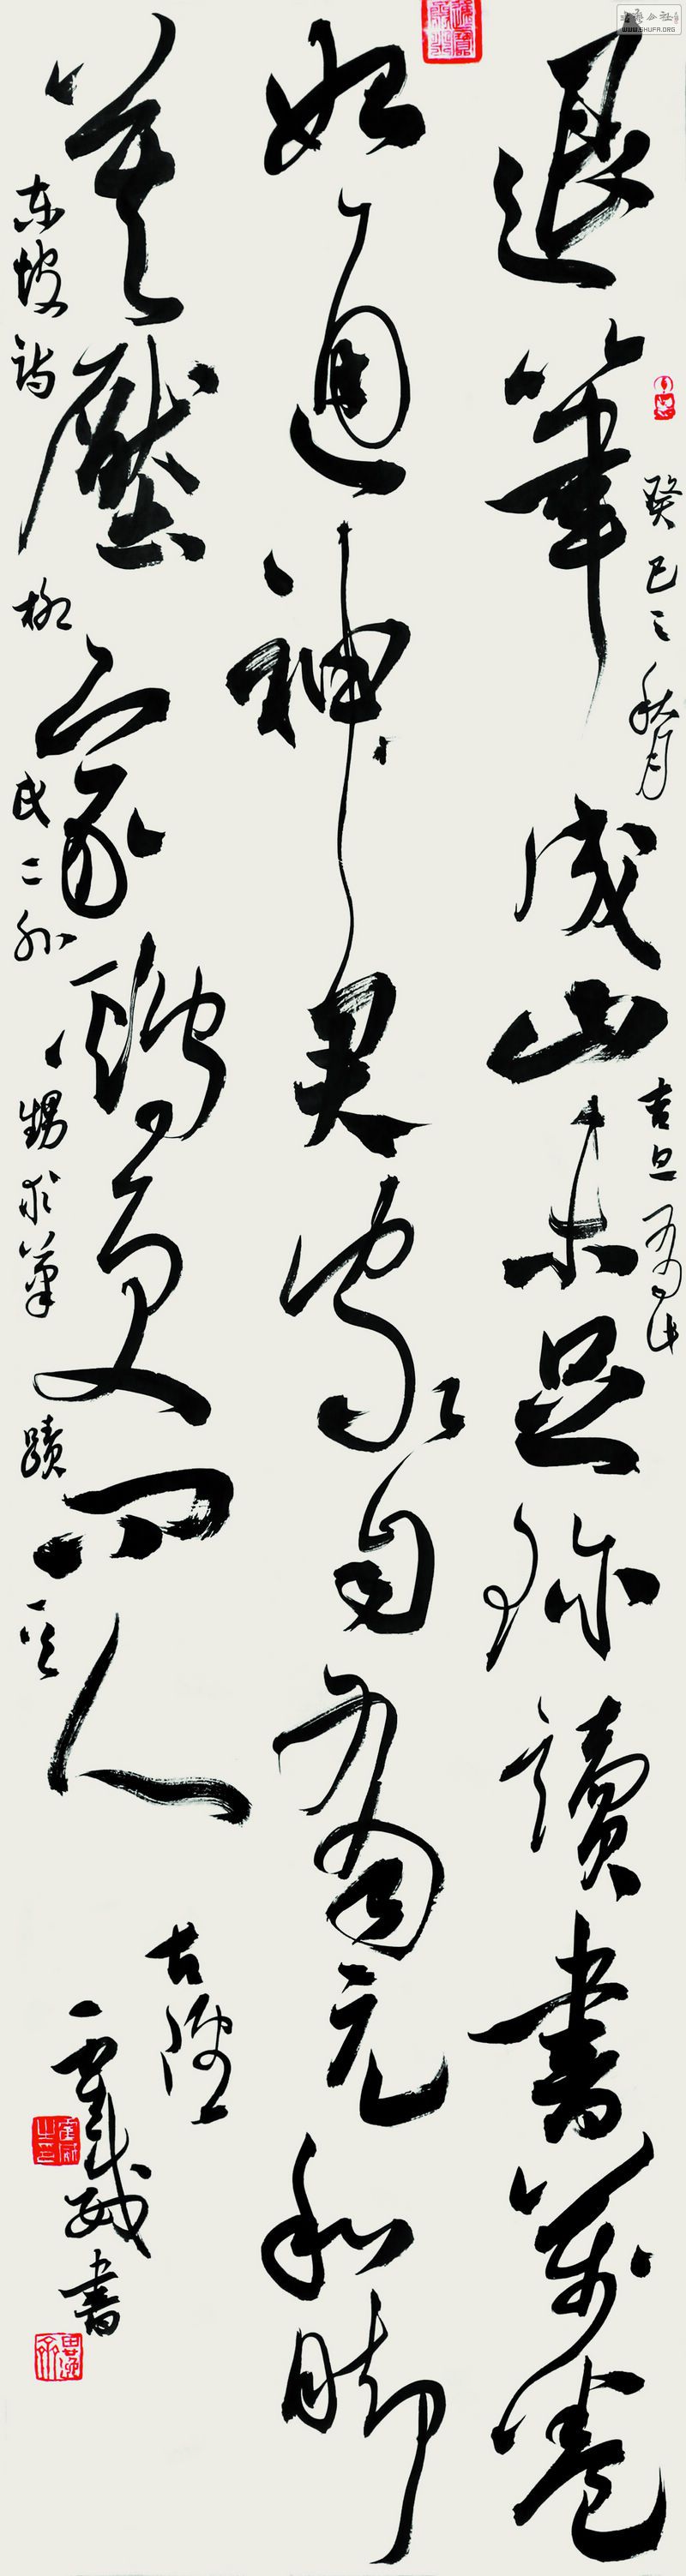 退筆成山未足珍讀書萬卷
始通神君家自有元和脚
莫壓家鷄更問人
東坡詩柳氏二外甥求筆蹟一首
癸巳之秋月吉旦
古陘
書
WWW.SHUFA.ORG